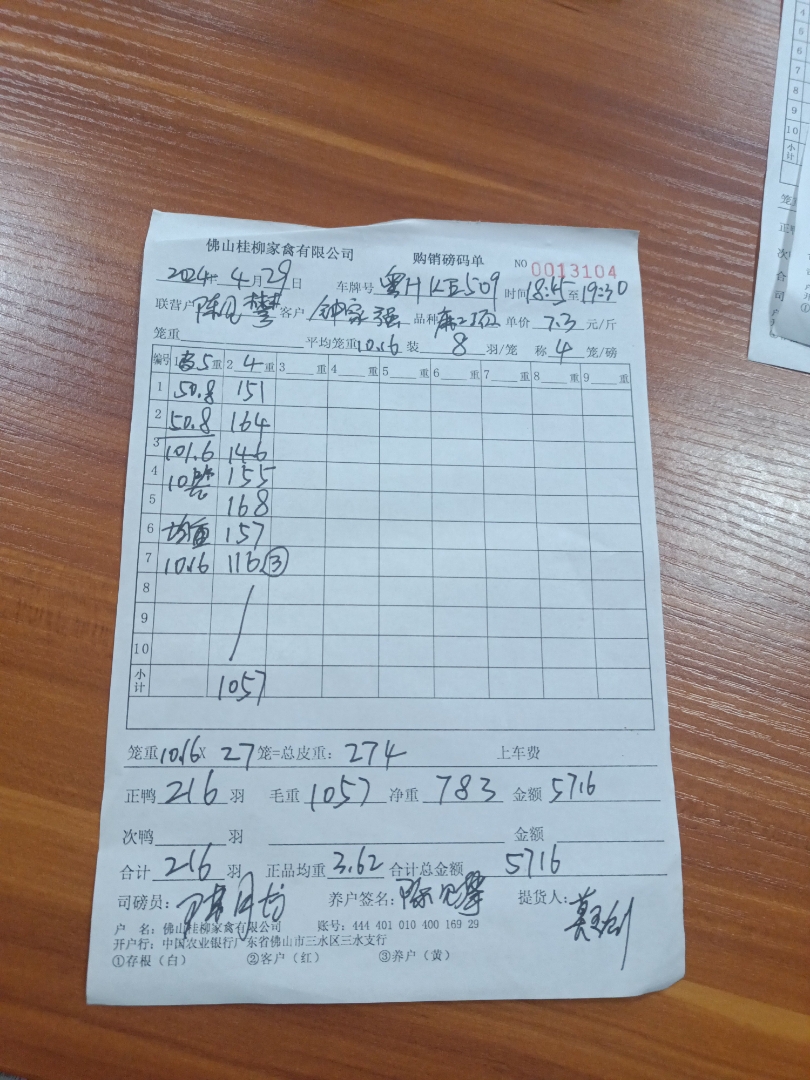 佛山桂柳家禽有限公司 购销磅码单 NO 0013104
2024年 4月29日 车牌号 粤HKE509 时间18:45至19:30
联营户 陈见攀 客户 钟家强 品种 单价 7.3 元/斤
笼重 平均笼重10.16 装 8 羽/笼 称 4 笼/磅
编号 1 5重 2 4重 3 重 4 重 5 重 6 重 7 重 8 重 9 重
1 50.8 151
2 50.8 164
3 101.6 146
4 10笼 155
5 168
6 均重 157
7 10.16 116 ③
8
9
10
小计 1057
笼重10.16X 27笼=总皮重: 274 上车费
正鸭 216 羽 毛重 1057 净重 783 金额 5716
次鸭 羽 金额
合计 216 羽 正品均重 3.62 合计总金额 5716
司磅员: 养户签名: 陈见攀 提货人:
户 名: 佛山桂柳家禽有限公司 账号: 444 401 010 400 169 29
开户行: 中国农业银行广东省佛山市三水区三水支行
①存根(白) ②客户(红) ③养户(黄)
4
5
6
7
8
9
10
小计
笼重
正鸭